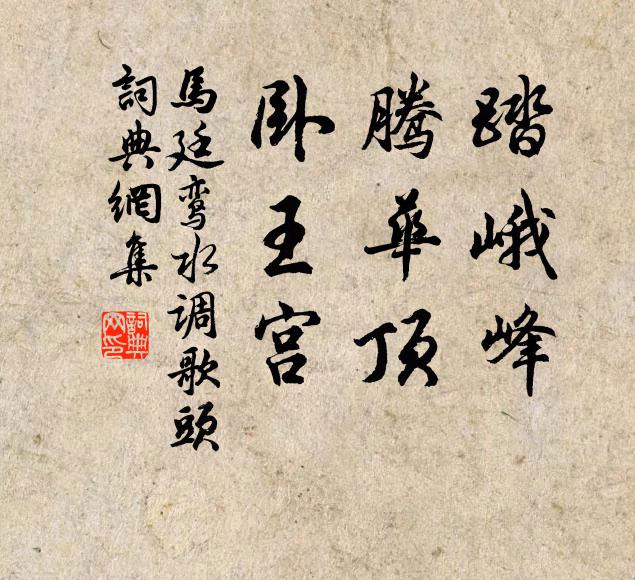 踏峨峰
腾華顶
卧王宫
馬廷鸾水调歌頭
詞典網集
詞典
网印